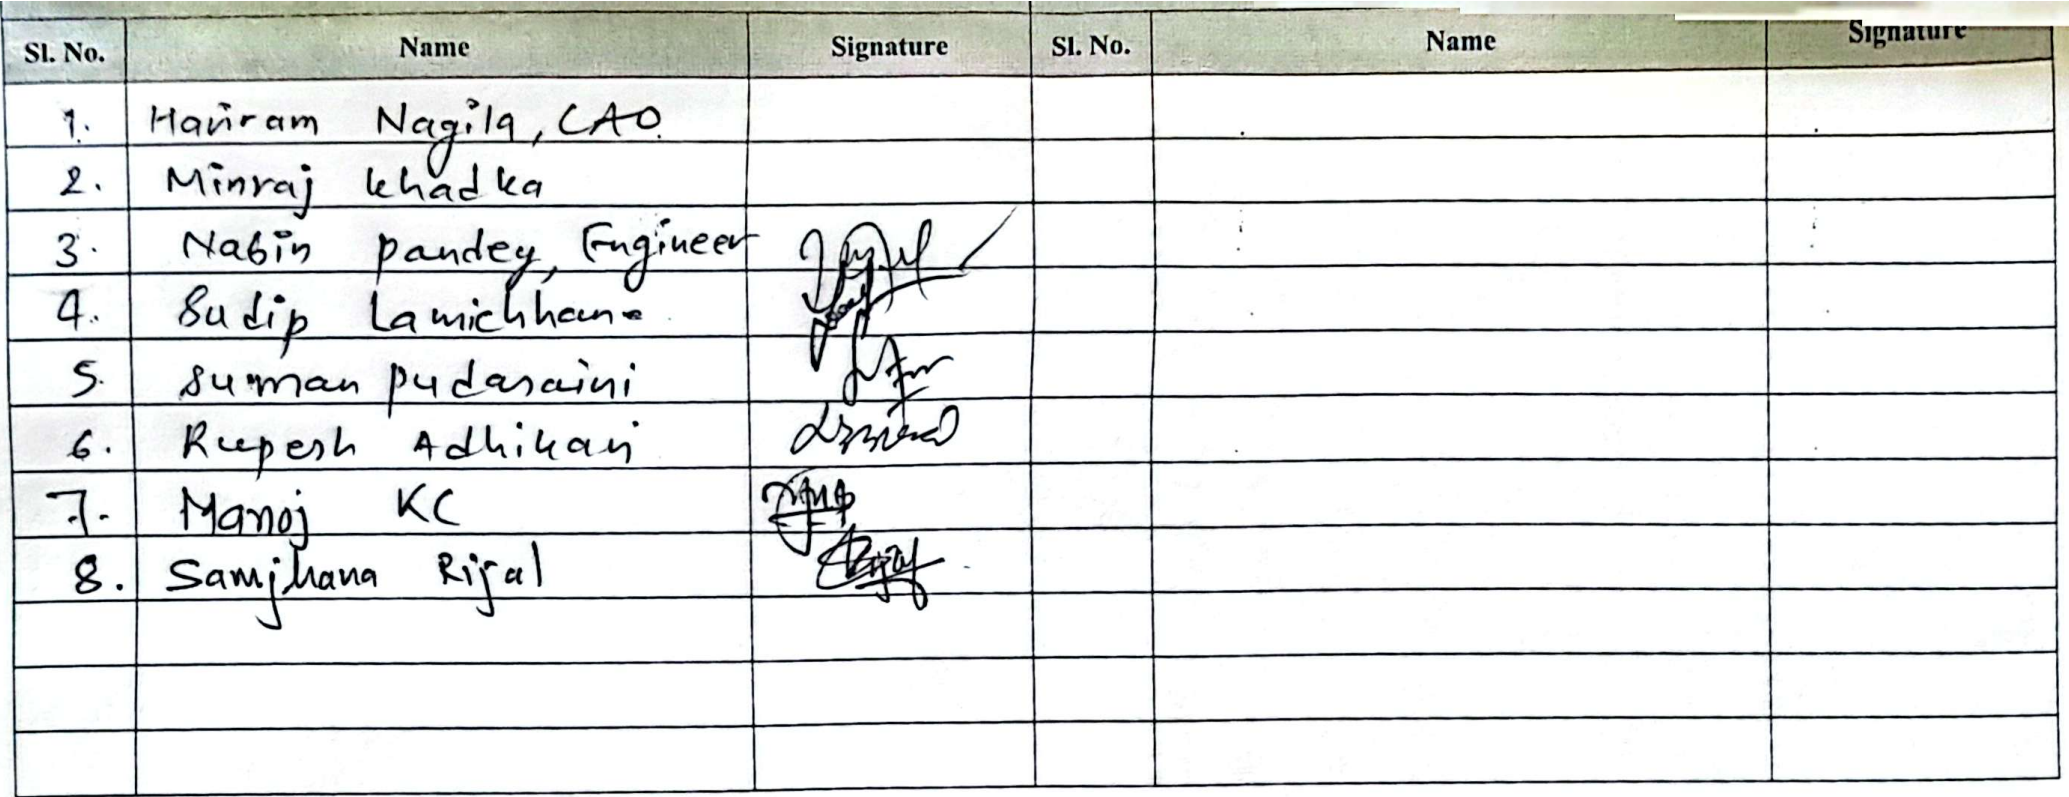 Sl. No. Name Signature Sl. No. Name Signature
1. Hariram Nagila, CAO
2. Minraj khadka
3. Nabin pandey, Engineer
4. Sudip Lamichhane
5. suman pudasaini
6. Rupesh Adhikari
7. Manoj KC
8. Samjhana Rijal